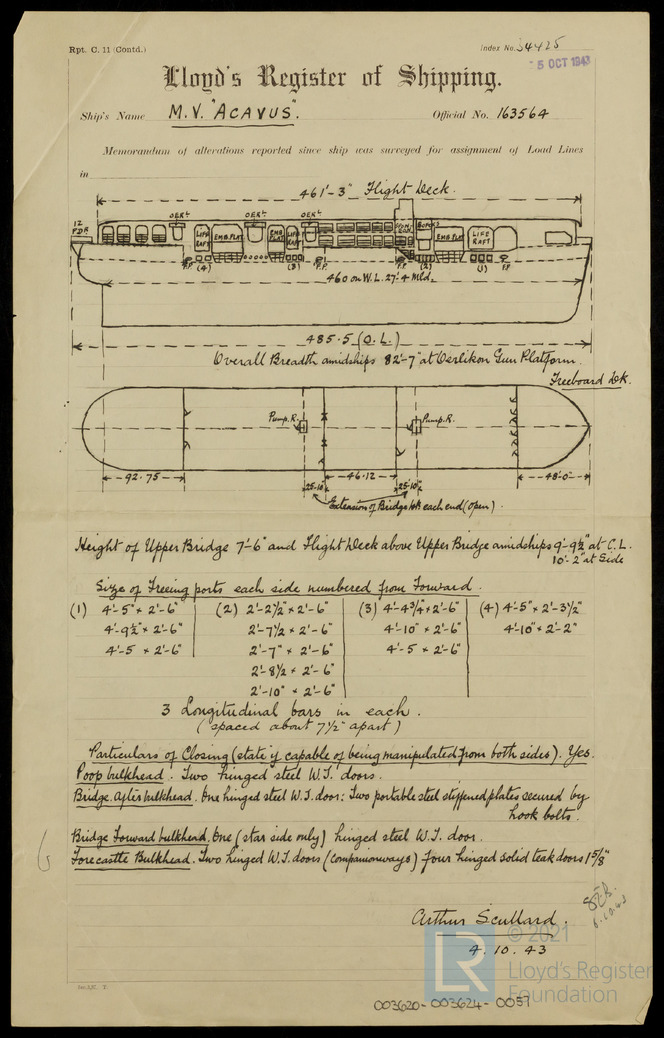 Rpt. C. 11 (Contd.)
Index No. 34425
5 OCT 1943
Lloyd's Register of Shipping.
Ship's Name M.V. "ACAVUS". Official No. 163564
Memorandum of alterations reported since ship was surveyed for assignment of Load Lines
in
461'-3" Flight Deck.
12 PDR
OERL. OERL. OERL.
LIFE RAFT EMB. PLAT EMB. PLAT LIFE RAFT EMB. PLAT LIFE RAFT
F.P. (4) (3) F.P. F.P. (2) (1) F.P.
460 on W.L. 27'-4 Mld.
485.5 (O.L.)
Overall Breadth amidships 82'-7" at Oerlikon Gun Platform.
Freeboard Dk.
Pump.R. Pump.R.
92.75 25-10" 46.12 25-10" 48-0"
Extension of Bridge Dk each end (open).
Height of Upper Bridge 7'-6" and Flight Deck above Upper Bridge amidships 9'-9½" at C.L.
10'-2" at Side
Size of Freeing ports each side numbered from Forward.
(1) 4'-5" × 2'-6" (2) 2'-2½" × 2'-6" (3) 4'-4¾" × 2'-6" (4) 4'-5" × 2'-3½"
4'-9½" × 2'-6" 2'-7½ × 2'-6" 4'-10" × 2'-6" 4'-10" × 2'-2"
4'-5 × 2'-6" 2'-7" × 2'-6" 4'-5 × 2'-6"
2'-8½ × 2'-6"
2'-10" × 2'-6"
3 Longitudinal bars in each.
(spaced about 7½" apart)
Particulars of Closing (state if capable of being manipulated from both sides). Yes.
Poop bulkhead. Two hinged steel W.T. doors.
Bridge After bulkhead. One hinged steel W.T. door: Two portable steel stiffened plates secured by
hook bolts.
Bridge Forward bulkhead. One (star side only) hinged steel W.T. door.
Forecastle Bulkhead. Two hinged W.T. doors (companionways) four hinged solid teak doors 1 5/8"
6.10.43
Arthur Scullard.
4.10.43
© 2021
LR
Lloyd's Register
Foundation
003620-003624-0057